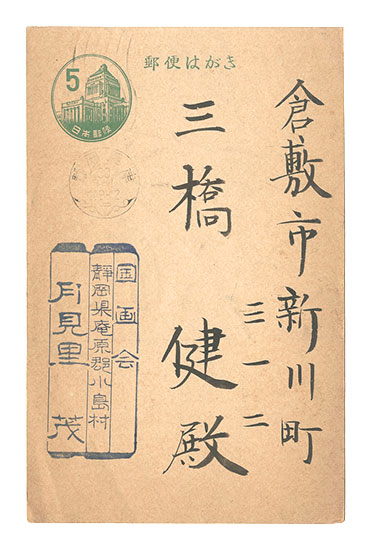 郵便はがき
5
日本郵便
倉敷市新川町
三一二
三橋 健殿
国画会
静岡県庵原郡小島村
月見里 茂